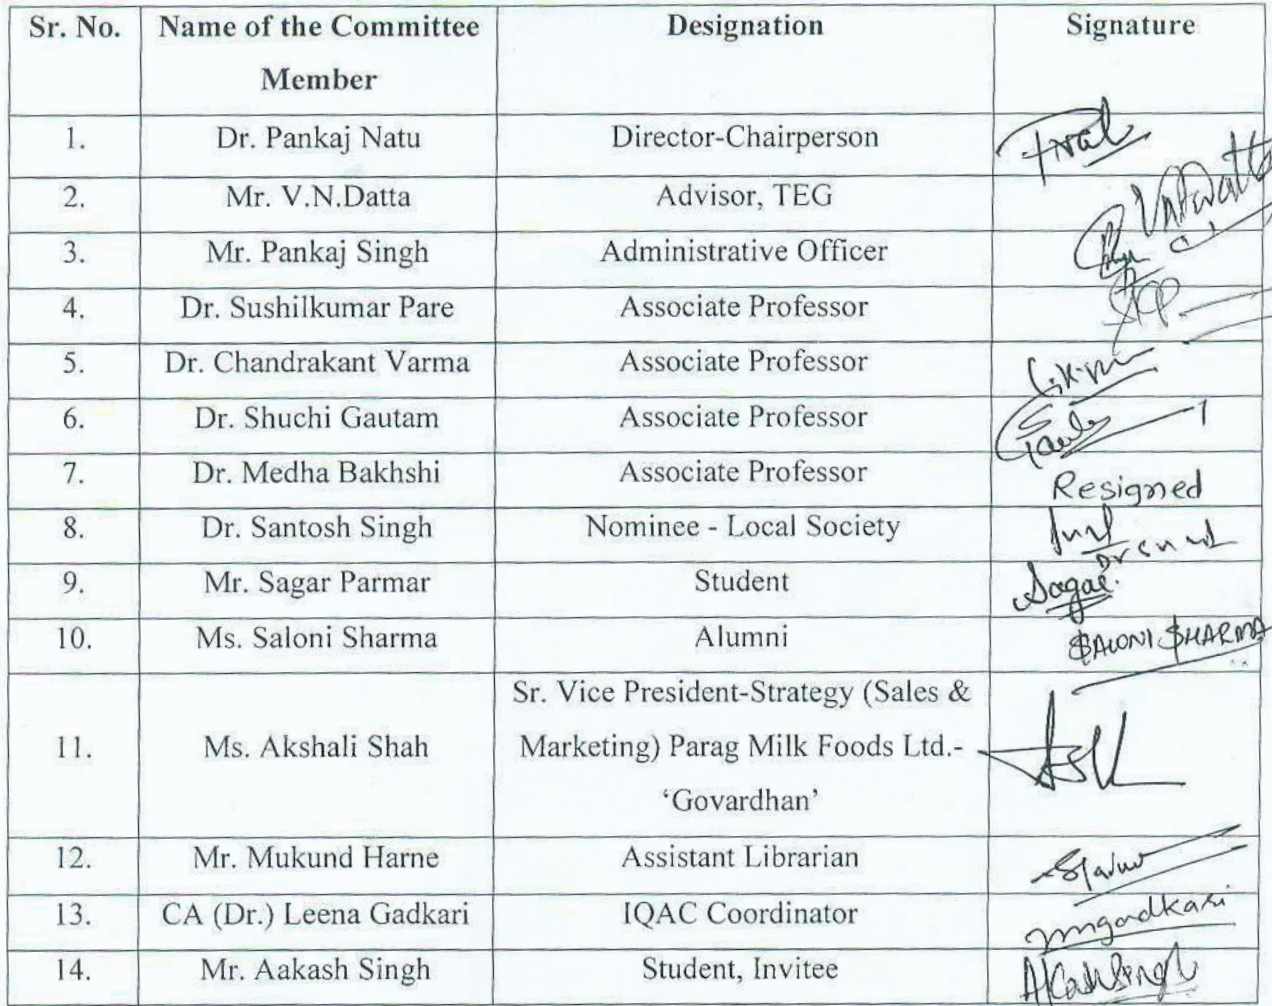 Sr. No. Name of the Committee Designation Signature
Member
1. Dr. Pankaj Natu Director-Chairperson
2. Mr. V.N.Datta Advisor, TEG
3. Mr. Pankaj Singh Administrative Officer
4. Dr. Sushilkumar Pare Associate Professor
5. Dr. Chandrakant Varma Associate Professor
6. Dr. Shuchi Gautam Associate Professor
7. Dr. Medha Bakhshi Associate Professor Resigned
8. Dr. Santosh Singh Nominee - Local Society
9. Mr. Sagar Parmar Student Sagar
10. Ms. Saloni Sharma Alumni SALONI SHARMA
Sr. Vice President-Strategy (Sales &
11. Ms. Akshali Shah Marketing) Parag Milk Foods Ltd.-
‘Govardhan’
12. Mr. Mukund Harne Assistant Librarian
13. CA (Dr.) Leena Gadkari IQAC Coordinator
14. Mr. Aakash Singh Student, Invitee